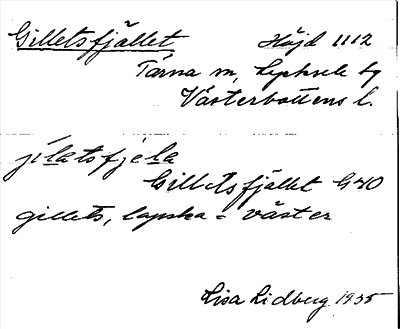 Gilletsfjället Höjd 1112
Tärna sn, Lycksele tg
Västerbottens l.
jilatsfjela
Gilletsfjället G40
gillets, lapska = väster
Lisa Lidberg 1935